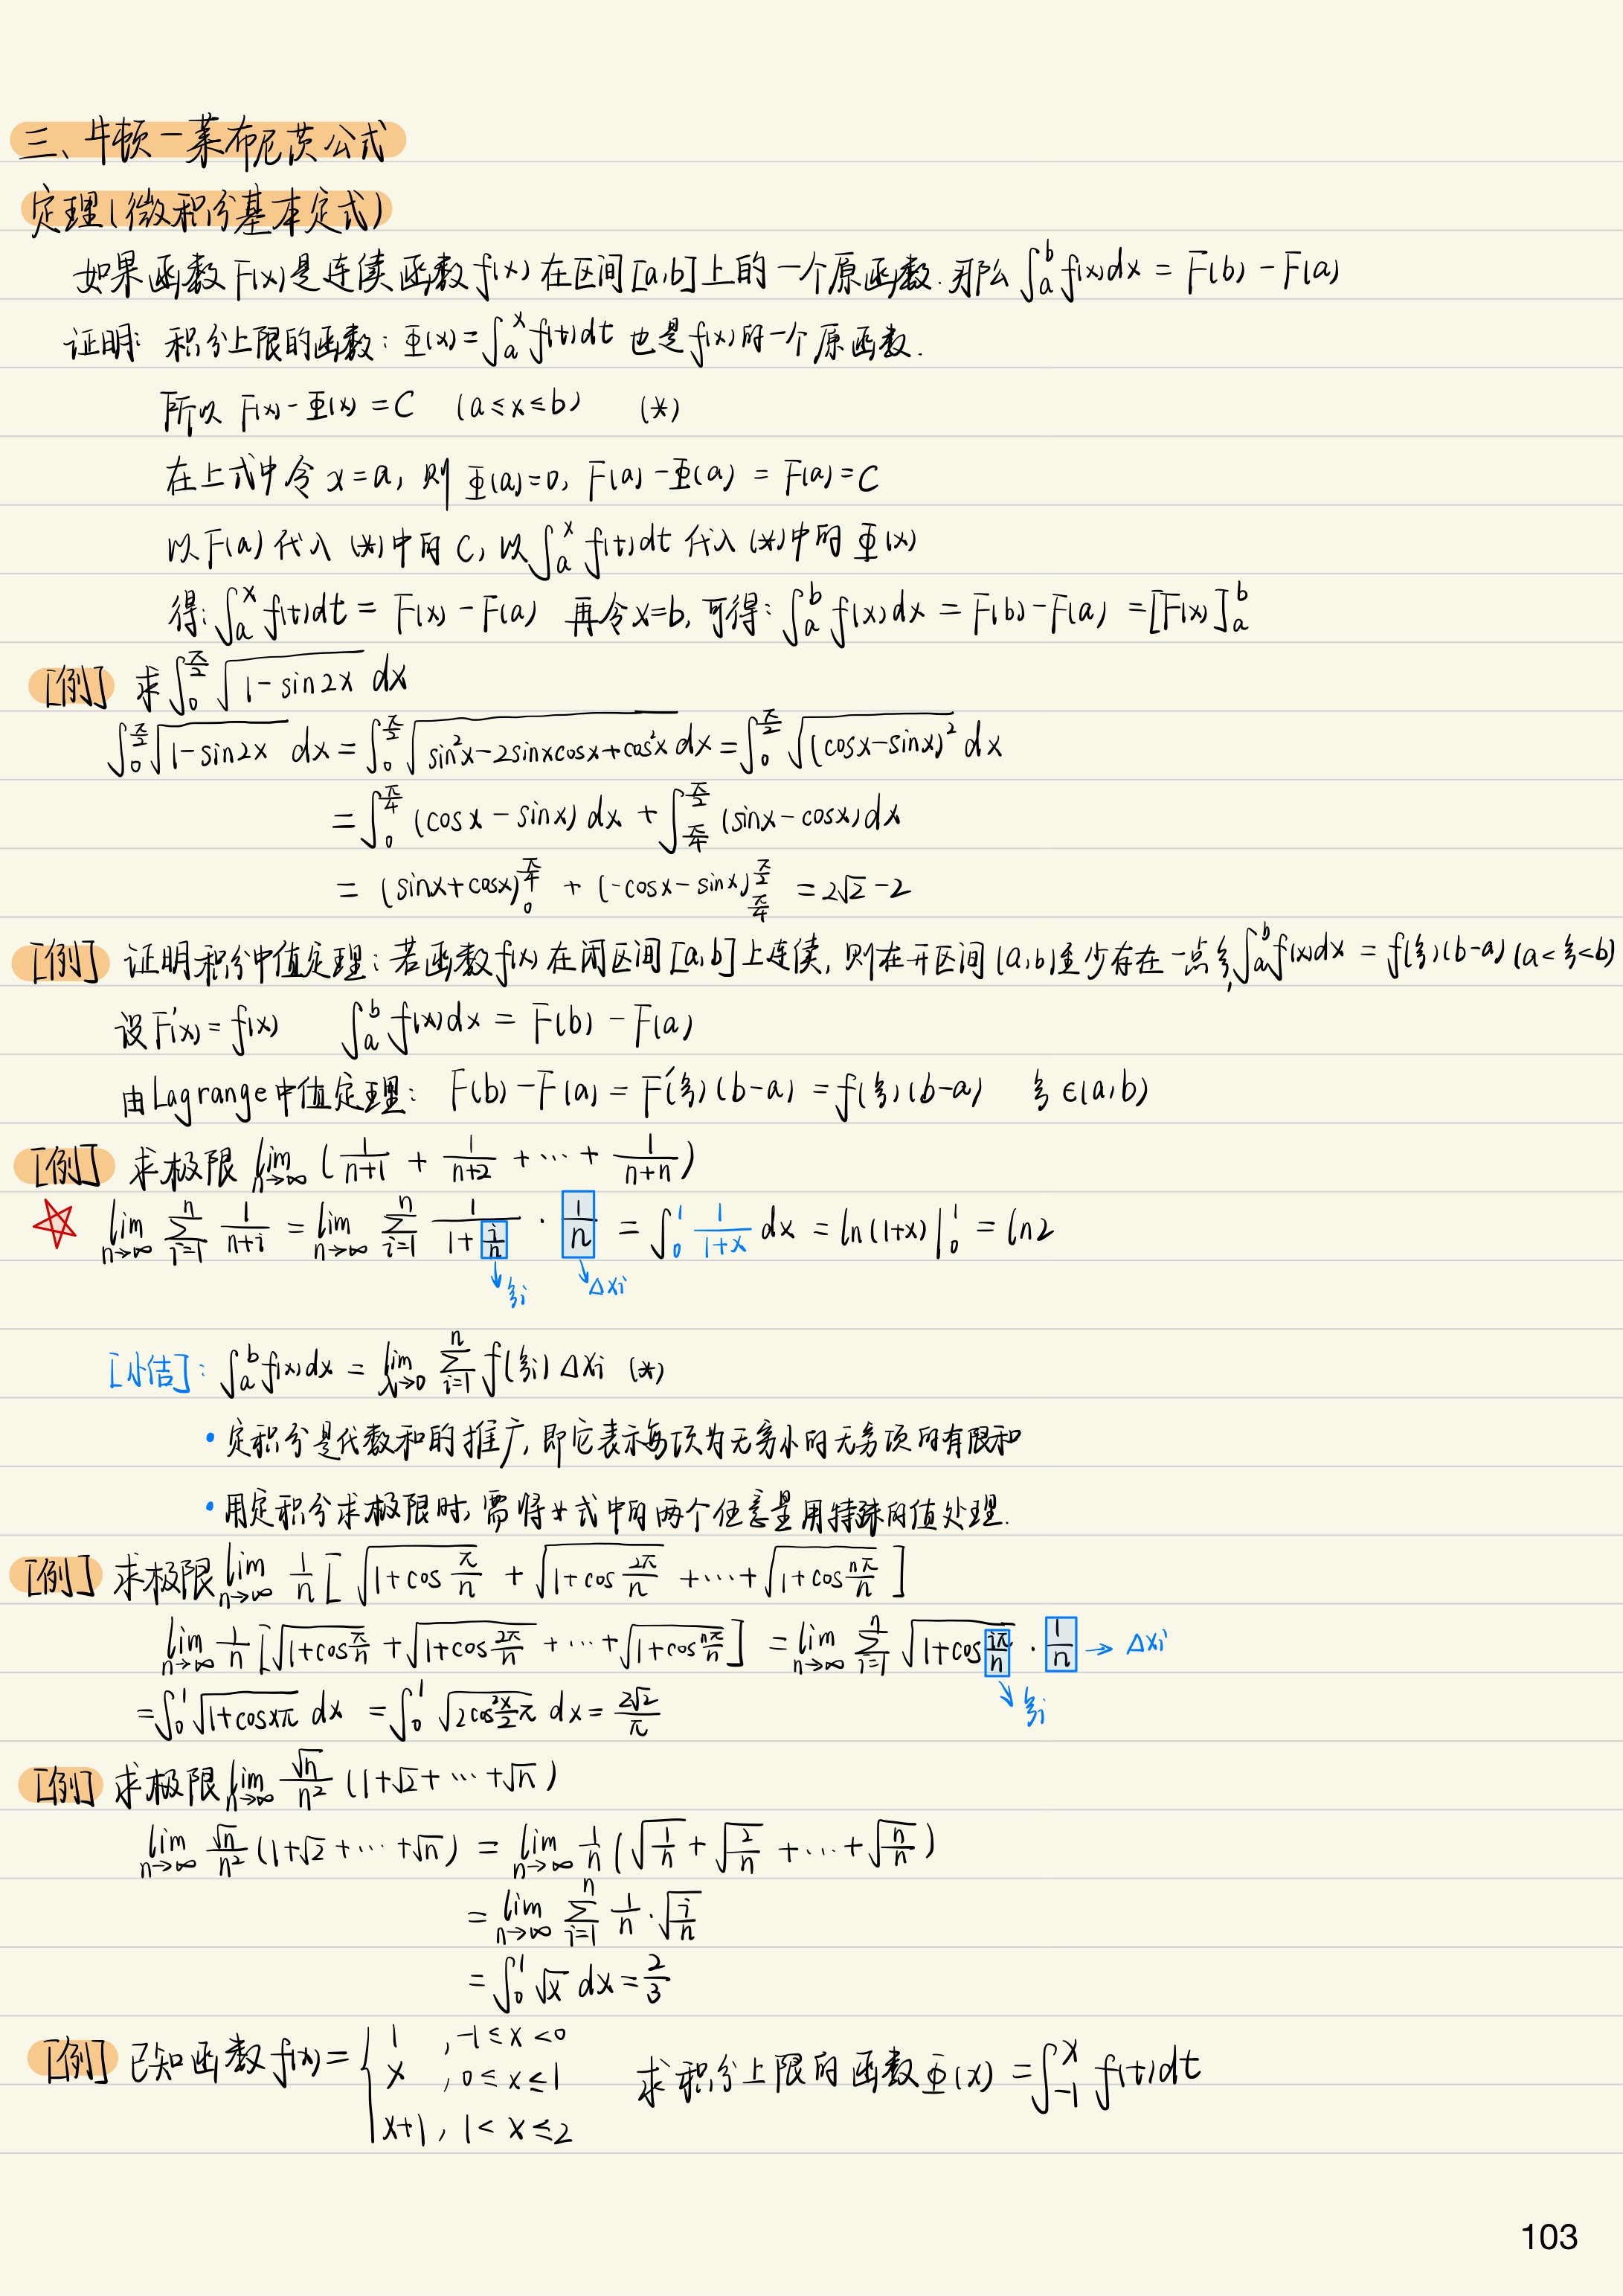 三、牛顿－莱布尼茨公式
定理(微积分基本定式)
如果函数F(x)是连续函数f(x)在区间[a,b]上的一个原函数.那么 ∫_a^b f(x)dx = F(b) - F(a)
证明: 积分上限的函数: Φ(x)=∫_a^x f(t)dt 也是f(x)的一个原函数.
所以 F(x) - Φ(x) = C (a≤x≤b) (*)
在上式中令 x=a, 则 Φ(a)=0, F(a) - Φ(a) = F(a) = C
以F(a)代入(*)中的C, 以∫_a^x f(t)dt 代入(*)中的Φ(x)
得: ∫_a^x f(t)dt = F(x) - F(a) 再令x=b, 可得: ∫_a^b f(x)dx = F(b) - F(a) = [F(x)]_a^b
[例] 求 ∫_0^{π/2} √(1-sin2x) dx
∫_0^{π/2} √(1-sin2x) dx = ∫_0^{π/2} √(sin²x-2sinxcosx+cos²x) dx = ∫_0^{π/2} √((cosx-sinx)²) dx
= ∫_0^{π/4} (cosx - sinx) dx + ∫_{π/4}^{π/2} (sinx - cosx) dx
= (sinx+cosx)_0^{π/4} + (-cosx - sinx)_{π/4}^{π/2} = 2√2 - 2
[例] 证明积分中值定理: 若函数f(x)在闭区间[a,b]上连续, 则在开区间(a,b)至少存在一点ξ, ∫_a^b f(x)dx = f(ξ)(b-a) (a<ξ<b)
设F'(x) = f(x) ∫_a^b f(x)dx = F(b) - F(a)
由Lagrange中值定理: F(b) - F(a) = F'(ξ)(b-a) = f(ξ)(b-a) ξ∈(a,b)
[例] 求极限 lim_{n→∞} (1/(n+1) + 1/(n+2) + ⋯ + 1/(n+n))
lim_{n→∞} Σ_{i=1}^n 1/(n+i) = lim_{n→∞} Σ_{i=1}^n 1/(1+i/n) · 1/n = ∫_0^1 1/(1+x) dx = ln(1+x)|_0^1 = ln2
↓ξi ↘Δxi
[小结]: ∫_a^b f(x)dx = lim_{λ→0} Σ_{i=1}^n f(ξi) Δxi (*)
• 定积分是代数和的推广, 即它表示每项为无穷小的无穷项的有限和
• 用定积分求极限时, 需将*式中的两个任意量用特殊的值处理.
[例] 求极限 lim_{n→∞} 1/n [√(1+cos π/n) + √(1+cos 2π/n) + ⋯ + √(1+cos nπ/n)]
lim_{n→∞} 1/n [√(1+cos π/n) + √(1+cos 2π/n) + ⋯ + √(1+cos nπ/n)] = lim_{n→∞} Σ_{i=1}^n √(1+cos iπ/n) · 1/n → Δxi
↘ξi
= ∫_0^1 √(1+cosxπ) dx = ∫_0^1 √(2cos² x/2 π) dx = 2√2/π
[例] 求极限 lim_{n→∞} √n/n² (1+√2+⋯+√n)
lim_{n→∞} √n/n² (1+√2+⋯+√n) = lim_{n→∞} 1/n (√(1/n) + √(2/n) + ⋯ + √(n/n))
= lim_{n→∞} Σ_{i=1}^n 1/n · √(i/n)
= ∫_0^1 √x dx = 2/3
[例] 已知函数 f(x) = { 1 , -1≤x<0
x , 0≤x≤1 求积分上限的函数Φ(x) = ∫_{-1}^x f(t)dt
x+1, 1<x≤2
103